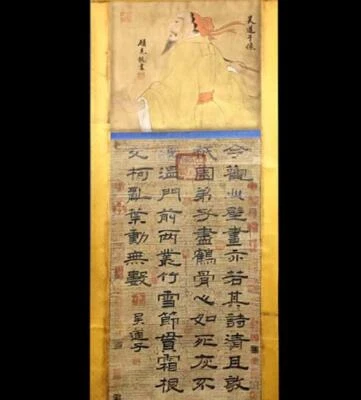 吳道子像
今觀此壁畫亦若其詩清且敦
祇園弟子盡鶴骨心如死灰不
復溫門前兩叢竹雪節貫霜根
交柯亂葉動無數
吳道子